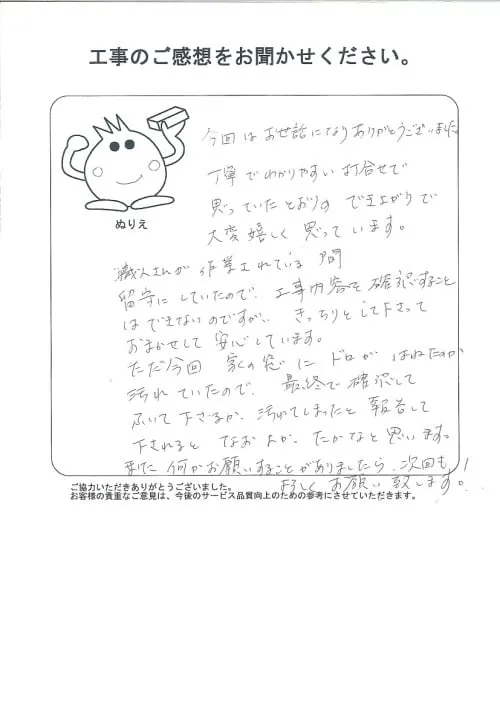 工事のご感想をお聞かせください。
今回はお世話になりありがとうございました
丁寧でわかりやすい打合せで
思っていたとおりの でき上がりで
大変嬉しく思っています。
ぬりえ
職人さんが作業されている間
留守にしていたので、工事内容を確認すること
はできないのですが、きっちりとして下さって
おまかせして安心しています。
ただ今回 家の窓にドロがはねたのか
汚れていたので、最終で確認して
ふいて下さるか、汚れてしまったと報告して
下されると なおよかったかなと思います。
また何かお願いすることがありましたら、次回も
よろしくお願い致します！
ご協力いただきありがとうございました。
お客様の貴重なご意見は、今後のサービス品質向上のための参考にさせていただきます。